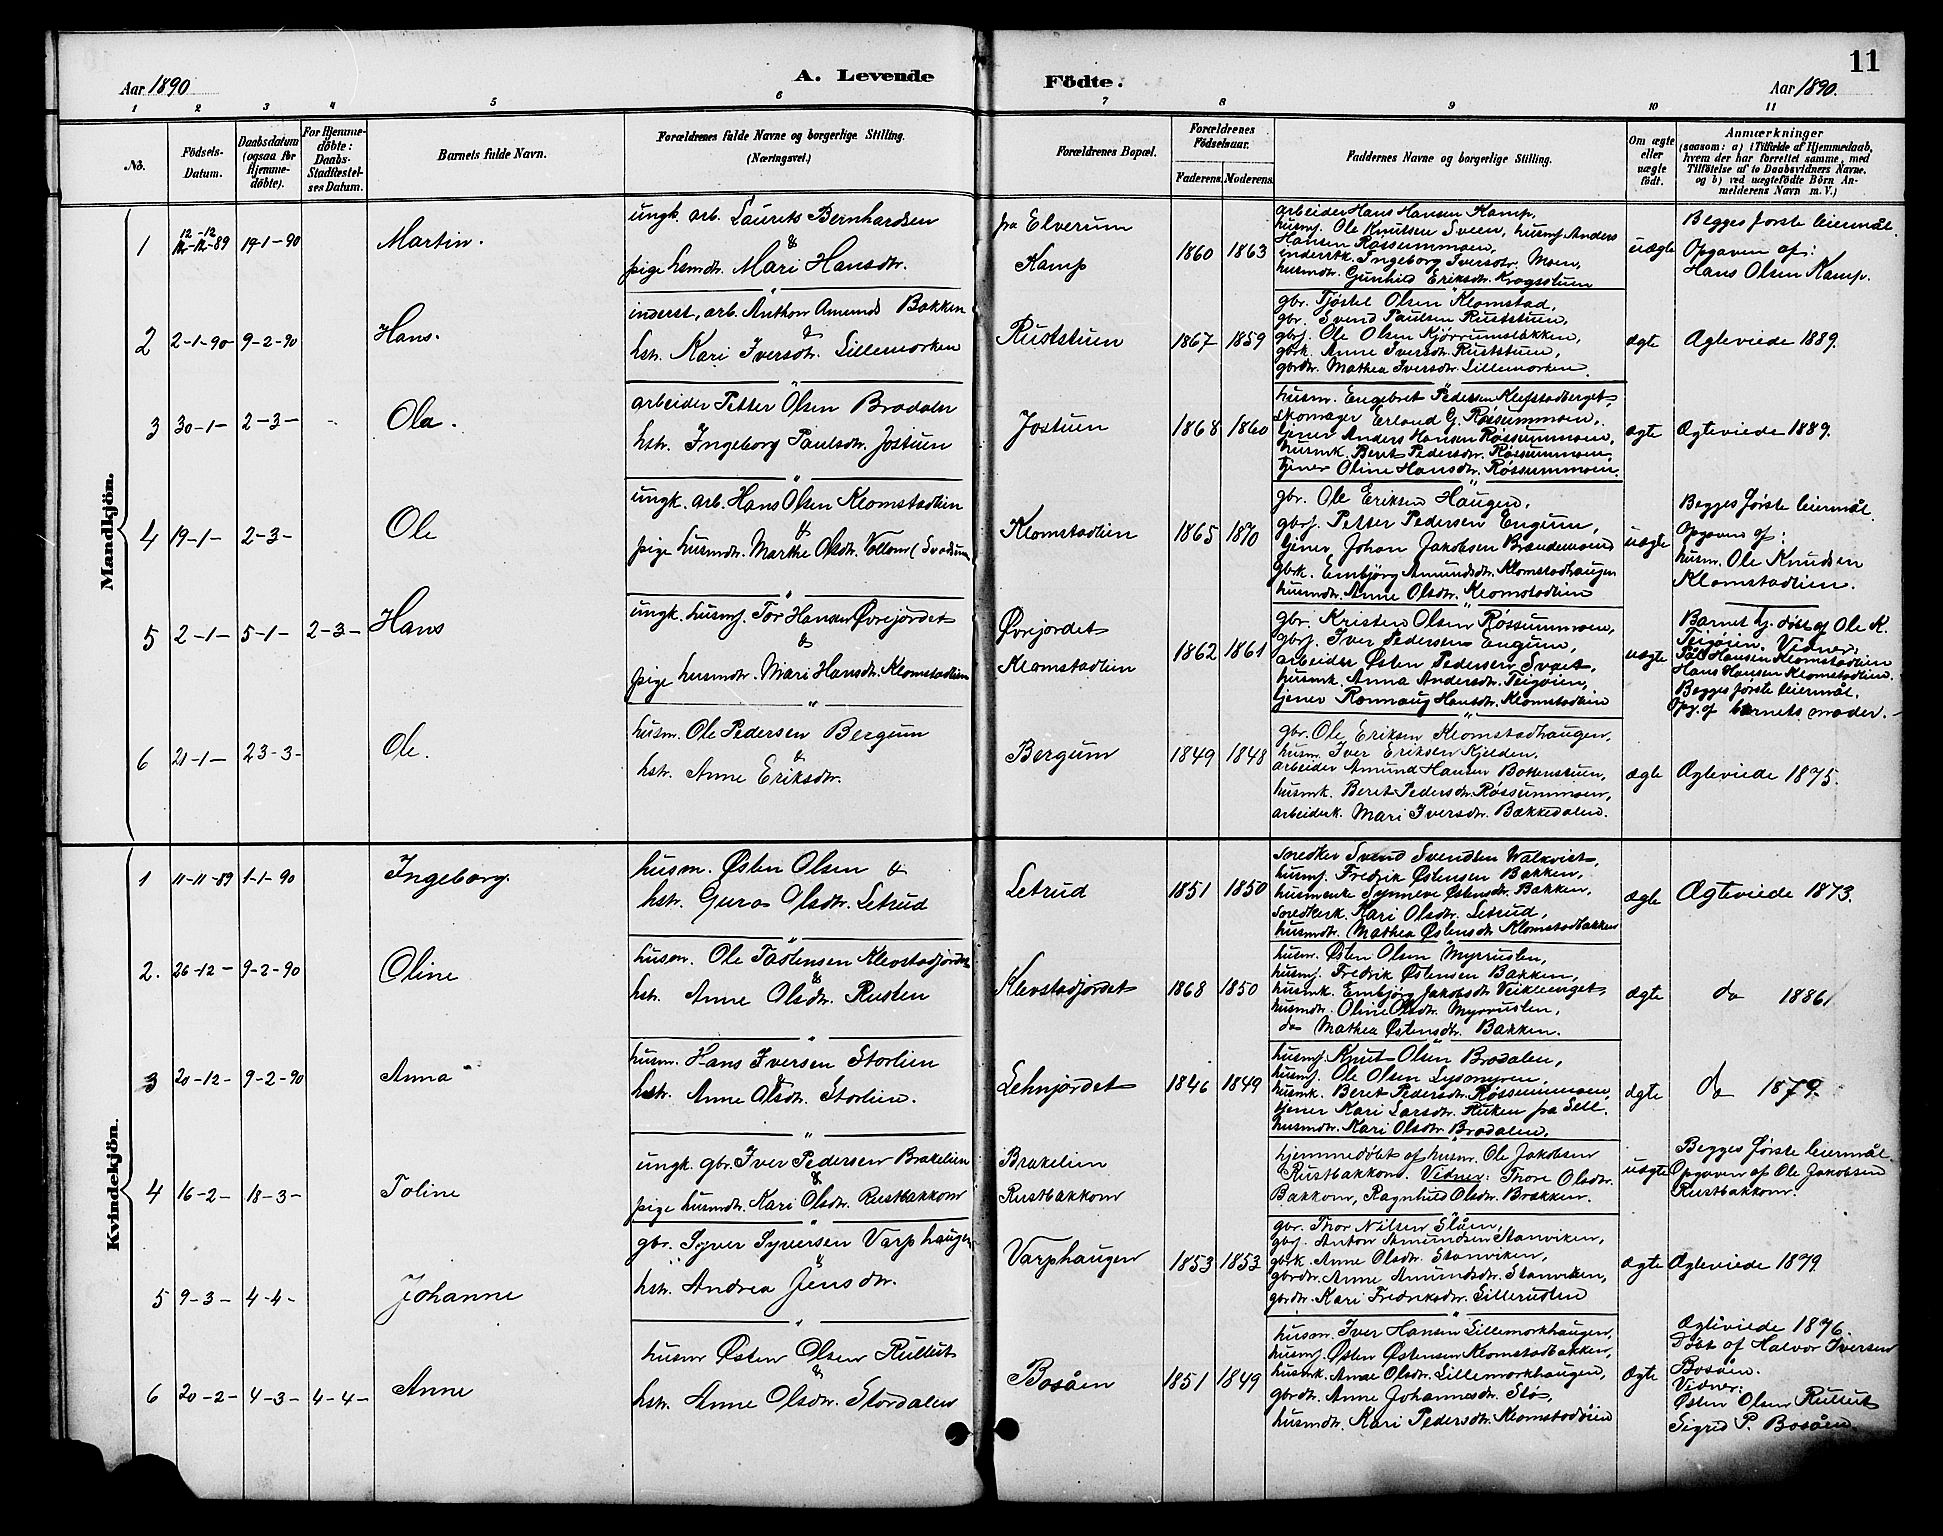 11
Aar 1890
A. Levende Födte.
Aar 1890.
1 2 3 4 5 6 7 8 9 10 11
No.
Födsels-Datum.
Daabsdatum (ogsaa for Hjemme-döbte).
For Hjemme-döbte: Daabs-Stadfæstel-ses Datum.
Barnets fulde Navn.
Forældrenes fulde Navne og borgerlige Stilling. (Næringsvei.)
Forældrenes Bopæl.
Forældrenes Födselsaar.
Faderens. Moderens.
Faddernes Navne og borgerlige Stilling.
Om ægte eller uægte födt.
Anmærkninger
(saasom: a) i Tilfælde af Hjemmedaab,
hvem der har forrettet samme, med
Tilföielse af to Daabsvidners Navne,
og b) ved uægtefödte Börn An-
melderens Navn m. V.)
Mandkjön.
1 12-12-89 19-1-90 Martin.
ungk. arb. Laurets Bernhardsen
&
pige husmdr. Mari Hansdr.
fra Elverum
Kamp
1860 1863
arbeider Hans Hansen Kamp,
husmf. Ole Knutsen Sveen, husmf. Anders
Hansen Røssummoen,
inderstk. Ingeborg Iversdr. Moen,
husmdr. Gunhild Eriksdr. Krogsstuen
uægte
Begges første leiermål.
Opgaven af:
Hans Olsen Kamp.
2 2-1-90 9-2-90 Hans.
inderst, arb. Anthon Amunds Bakken
&
hstr. Kari Iversdr. Lillemorken
Ruststuen
1867 1859
gbr. Tjøstel Olsen Klomstad,
gbr. Svend Paulsen Ruststuen,
gbrf. Ole Olsen Kjørrumsløkken,
gbrk. Anne Iversdr. Ruststuen,
gbrdr. Mathea Iversdr. Lillemorken.
ægte
Ægteviede 1889.
3 30-1- 2-3- - Ola.
arbeider Petter Olsen Bradalen
hstr. Ingeborg Paulsdr. Jostuen
Jostuen
1868 1860
husm. Engebret Pedersen Klefstadberget,
skomager Erland G. Røssummoen,
tjener Anders Hansen Røssummoen,
husmk. Berit Pedersdr. Røssummoen,
tjener Oline Hansdr. Røssummoen.
ægte
Ægteviede 1889.
4 19-1- 2-3- Ole
ungk. arb. Hans Olsen Klomstadlien
&
pige husmdr. Marthe Olsdr. Vollom (Svadsum
Klomstadlien
1865 1870
gbr. Ole Eriksen Haugen,
gbrf. Petter Pedersen Engum,
tjener Johan Jakobsen Brændemoen
gbrk. Embjørg Amundsdr. Klomstadhaugen
husmdr. Anne Olsdr. Klomstadlien
uægte
Begges første leiermål.
Opgaven af:
husm. Ole Knudsen
Klomstadlien.
5 2-1- 5-1- 2-3- Hans
ungk. husmf. Tor Hansen Øvrejordet
&
pige husmdr. Mari Hansdr. Klomstadlien
Øvrejordet
Klomstadlien
1862 1861
gbr. Kristen Olsen Røssummoen,
gbrf. Iver Pedersen Engum,
arbeider Østen Pedersen Svaet,
husmk. Anna Andersdr. Teigøien,
tjener Rønnaug Hansdr. Klomstadlien
uægte
Barnet hj. døbt af Ole K.
Teigøien. Vidner:
Pål Hansen Klomstadlien
Hans Hansen Klomstadlien.
Begges første leiermål.
Opg. af barnets moder.
6 21-1- 23-3- Ole.
husm. Ole Pedersen Bergum
&
hstr. Anne Eriksdr.
Bergum
1849 1848
gbr. Ole Eriksen Klomstadhaugen,
husm. Iver Eriksen Kjelden,
arbeider Amund Hansen Bottenstuen,
husmk. Berit Pedersdr. Røssummoen,
arbeiderk. Mari Iversdr. Bækkedalen.
ægte
Ægteviede 1875.
Kvindekjön.
1 11-11-89 1-1-90 Ingeborg.
husm. Østen Olsen &
hstr. Guro Olsdr. Letrud
Letrud
1851 1850
snedker Svend Svendsen Walkvist,
husmf. Fredrik Østensen Bakken,
husmenk. Synneve Østensdr. Bakken,
snedkerk. Kari Olsdr. Letrud,
husmdr. Mathea Østensdr. Klomstadbakken
ægte
Ægteviede 1873.
2. 26-12- 9-2-90 Oline
husm. Ole Tostensen Klevstadjordet
&
hstr. Anne Olsdr. Rusten
Klevstadjordet
1868 1850
husm. Østen Olsen Myrruslen,
husmf. Fredrik Østensen Bakken,
husmk. Embjørg Jakobsdr. Veiklenget,
husmdr. Oline Olsdr. Myrruslen,
do Mathea Østensdr. Bakken.
ægte
do 1886
3 20-12- 9-2-90 Anna
husm. Hans Iversen Storlien
&
hstr. Anne Olsdr. Storlien.
Lehnjordet
1846 1849
husmf. Knut Olsen Bradalen,
husmf. Ole Olsen Lysmyren,
husmk. Berit Pedersdr. Røssummoen,
tjener Kari Larsdr. Ruken fra Sell.
husmdr. Kari Olsdr. Bradalen.
ægte
do 1879.
4 16-2- 18-3- Toline
ungk. gbr. Iver Pedersen Brakelien
&
pige husmdr. Kari Olsdr. Rustbakkom
Brakelien
Rustbakkom
hjemmedøbt af husm. Ole Jakobsen
Rustbakkom. Vidner: Thore Olsdr.
Bakkom, Ragnhild Olsdr. Brakken.
uægte
Begges første leiermål.
Opgaven af Ole Jakobsen
Rustbakkom.
5 9-3- 4-4- Johanne
gbr. Syver Syversen Varphaugen
&
hstr. Andrea Jensdr.
Varphaugen
1853 1853
gbr. Thor Nilsen Slåen,
gbrf. Anton Amundsen Stanviken,
gbrk. Anne Olsdr. Stanviken,
gbrdr. Anne Amundsdr. Stanviken,
gbrdr. Kari Fredriksdr. Lilleruslen
ægte
Ægteviede 1879.
6 20-2- 4-3- 4-4- Anne
husm Østen Olsen Rullut
&
hstr. Anne Olsdr. Stordalen
Bosåen
1851 1849
husm. Iver Hansen Lillemorkhaugen,
husmf. Østen Østensen Klomstadbakken,
husmk. Anne Olsdr. Lillemorkhaugen,
gbrdr. Anne Johannesdr. Stø,
husmdr. Kari Pedersdr. Klomstadøien
ægte
Ægteviede 1876.
Døbt af Halvor Iversen
Bosåen.
Vidner:
Østen Olsen Rullut
Sigrid P. Bosåen.